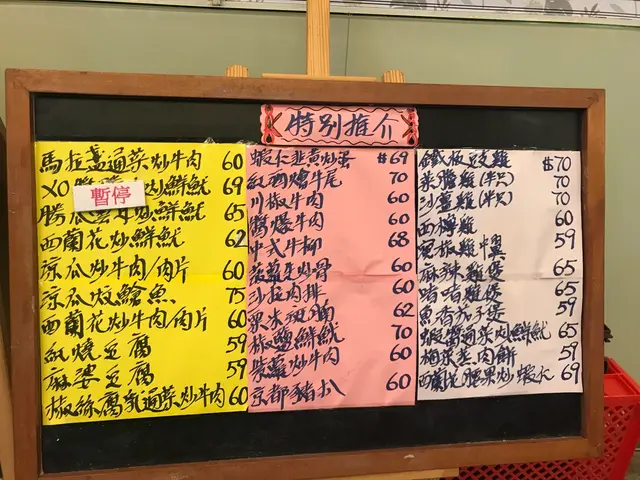 特別推介
馬拉盞通菜炒牛肉 60
XO 炒鮮魷 69
暫停
勝瓜 炒鮮魷 65
西蘭花炒鮮魷 62
涼瓜炒牛肉/肉片 60
涼瓜炆鯰魚 75
西蘭花炒牛肉/肉片 60
紅燒豆腐 59
麻婆豆腐 59
椒絲腐乳通菜炒牛肉 60
蝦仁韭黃炒蛋 $69
紅酒燴牛尾 70
川椒牛肉 60
醬爆牛肉 60
中式牛柳 68
菠蘿生炒骨 60
沙拉肉排 60
粟米斑腩 62
椒鹽鮮魷 70
紫蘿炒牛肉 60
京都豬扒 60
鐵板豉雞 $70
茶香雞(半只) 70
沙薑雞(半只) 70
西檸雞 60
椒雞中翼 59
麻辣雞煲 65
啫啫雞煲 65
魚香茄子煲 59
蝦醬通菜炆鮮魷 65
梅菜蒸肉餅 59
西蘭花腰果炒蝦仁 69